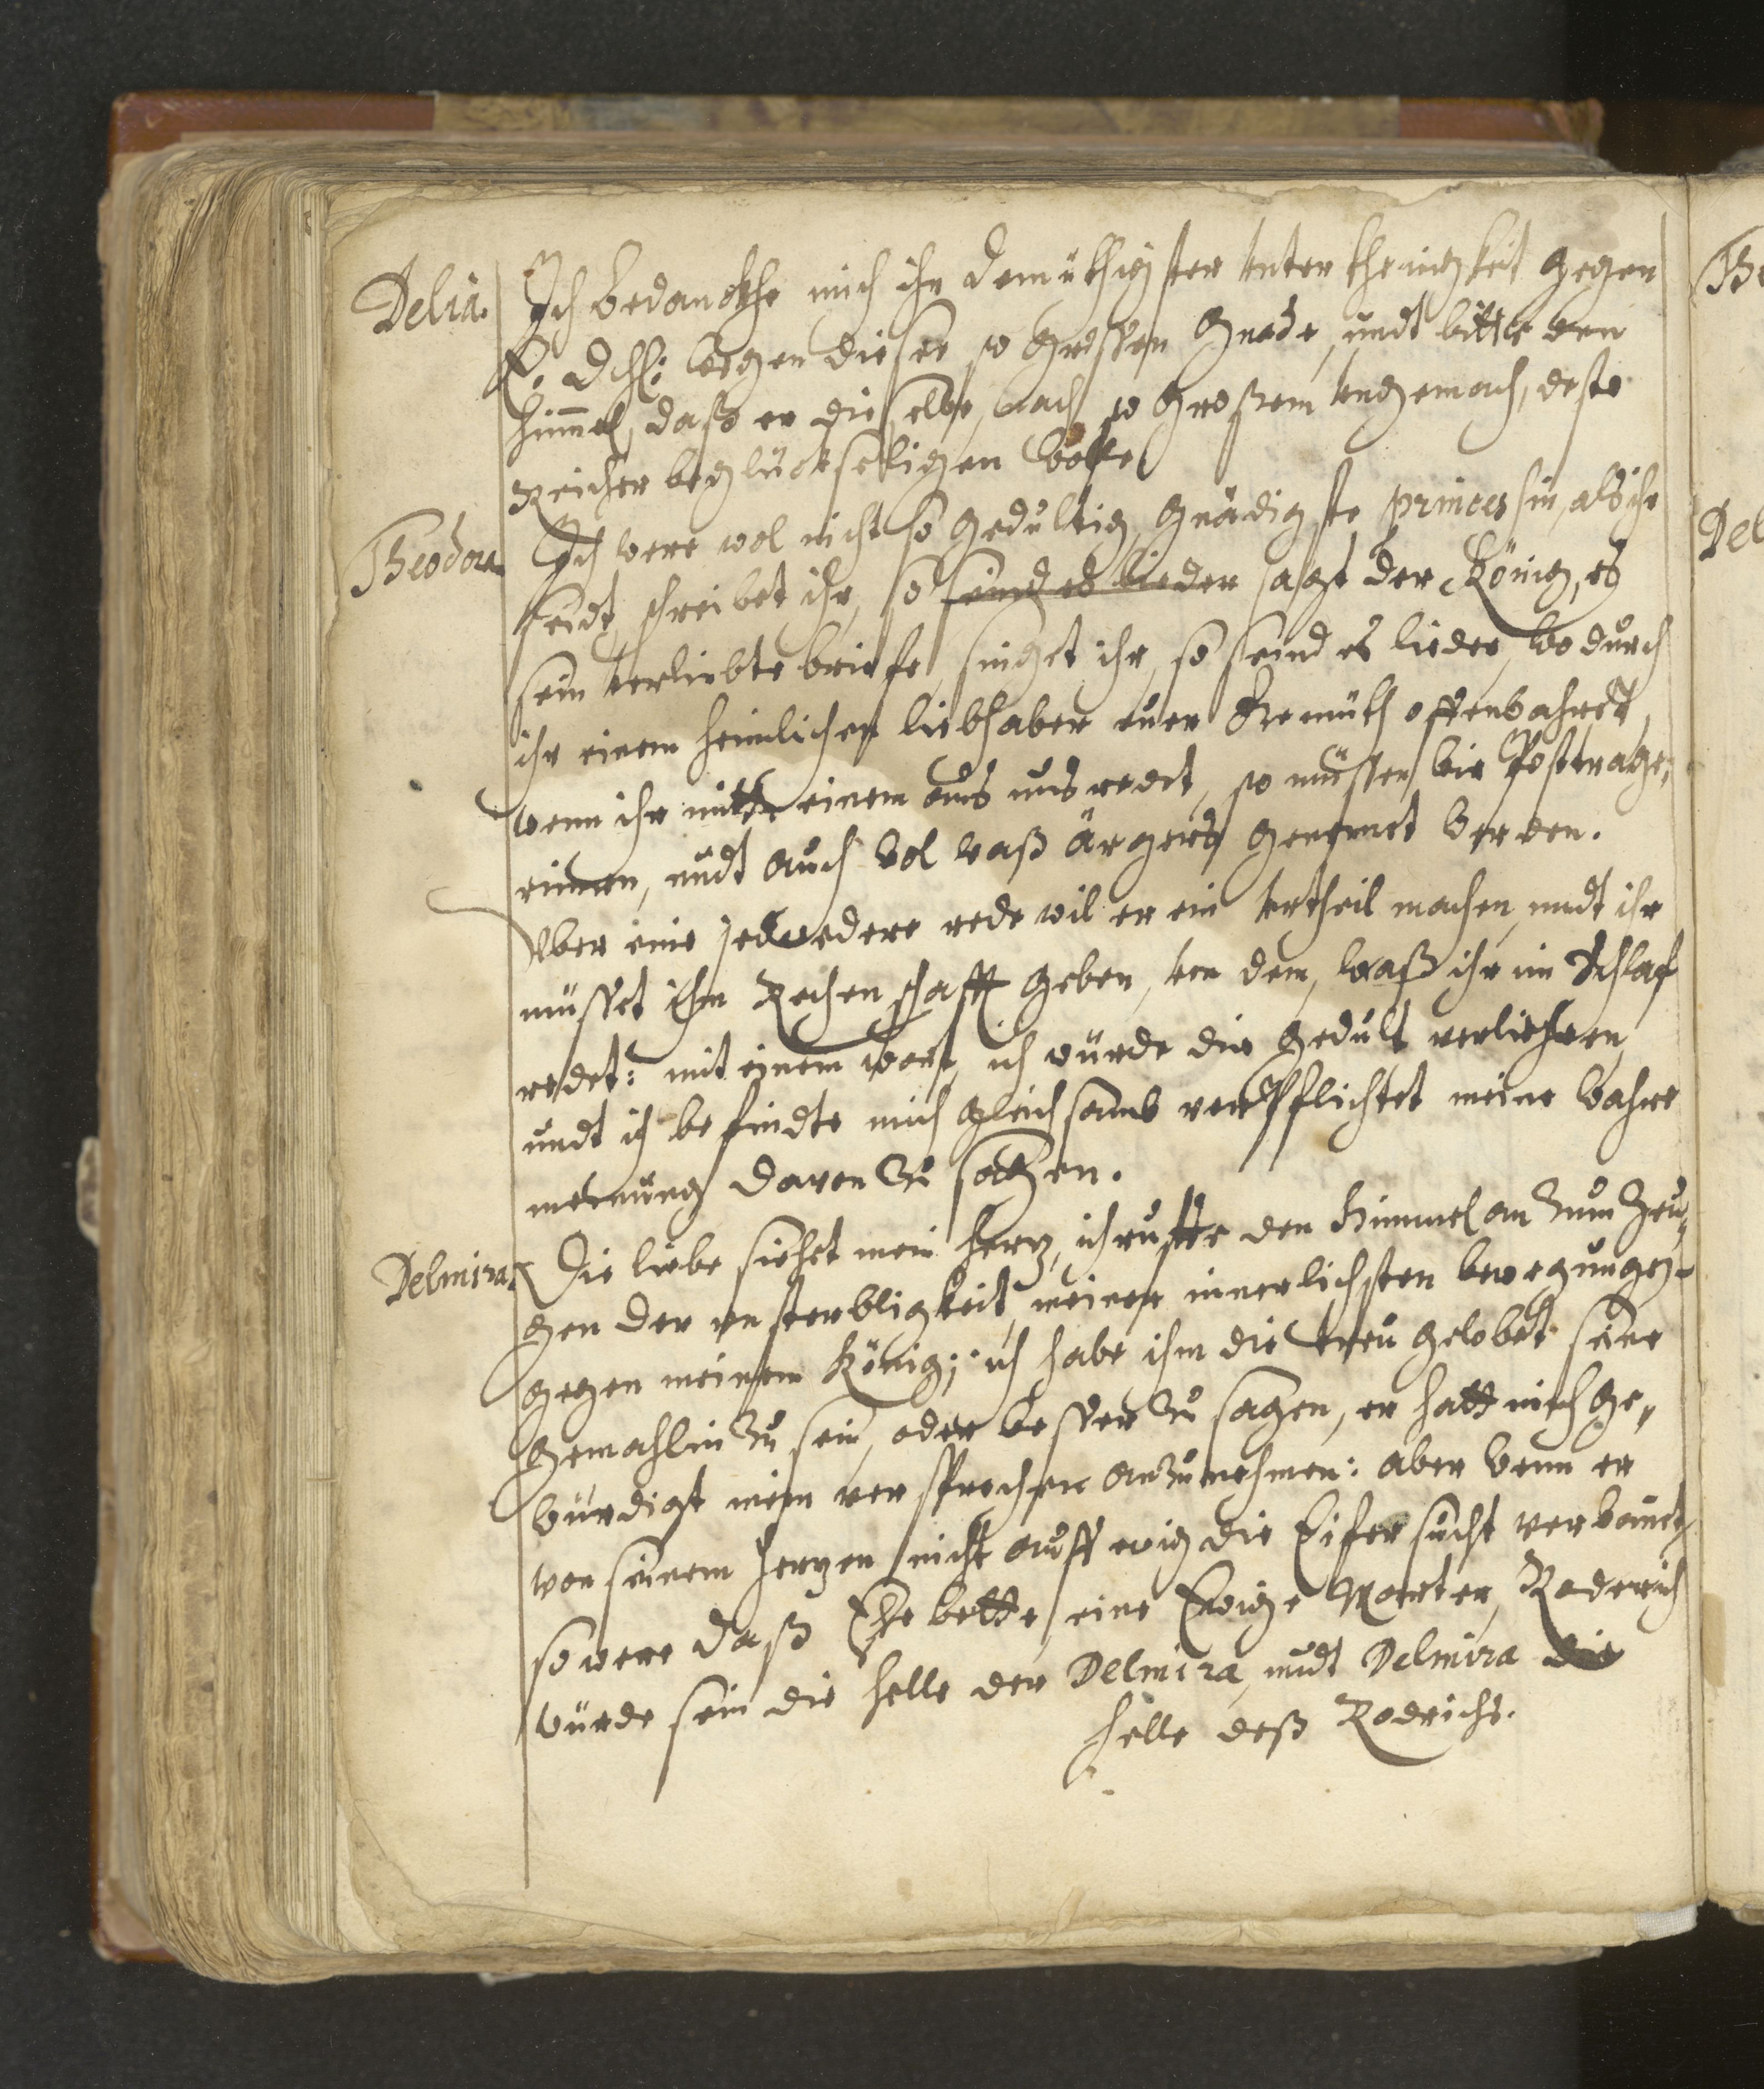 Delia. Ich bedanckhe mich ihn demüthigster unterthenigkeit gegen
E. Dchl: wegen dieser so grossen gnade, undt bitte den
himmel, daß er dieselbe, nach so großem ungemach, desto
Reicher beglückseligen wolle.
Theodora. Ich were wol nicht so gedultig, gnädigste princessin, als ihr
seidt, schreibet ihr, so seind es lieder sagt der König, es
sein verliebte briefe, singet ihr, so seind es lieder, wodurch
ihr einem heimlichen liebhaber euer Gemüth offenbahret,
wenn ihr mitt einem aus uns redet, so müssen wir Posttrage,,
rinnen, undt auch wol waß ärgers genennet werden.
Vber eine jedwedere rede wil er ein urtheil machen, undt ihr
müsset ihm Rechenschafft geben, von dem, waß ihr im Schlaf
redet: mit einem wort, ich würde die gedult verliehren,
undt ich befindte mich gleichsamb verpflichtet meine wahre
meinung davon zu sagen.
Delmira. Die liebe siehet mein hertz, ich ruffe den Himmel an zum Zeu,,
gen der unsterbligkeit, meiner innerlichsten bewegungen
gegen meinem König; ich habe ihm die treu gelobet seine
gemahlin zu sein, oder besser zu sagen, er hatt mich ge,,
würdigt mein versprechen anzunehmen: aber wenn er
von seinem hertzen nicht auff ewig die Eifersucht verbannet,
so were daß Ehebette, eine Ewige Marter, Roderich
würde sein die helle der Delmira, undt Delmira die
helle deß Rodrichs.
Th
Del